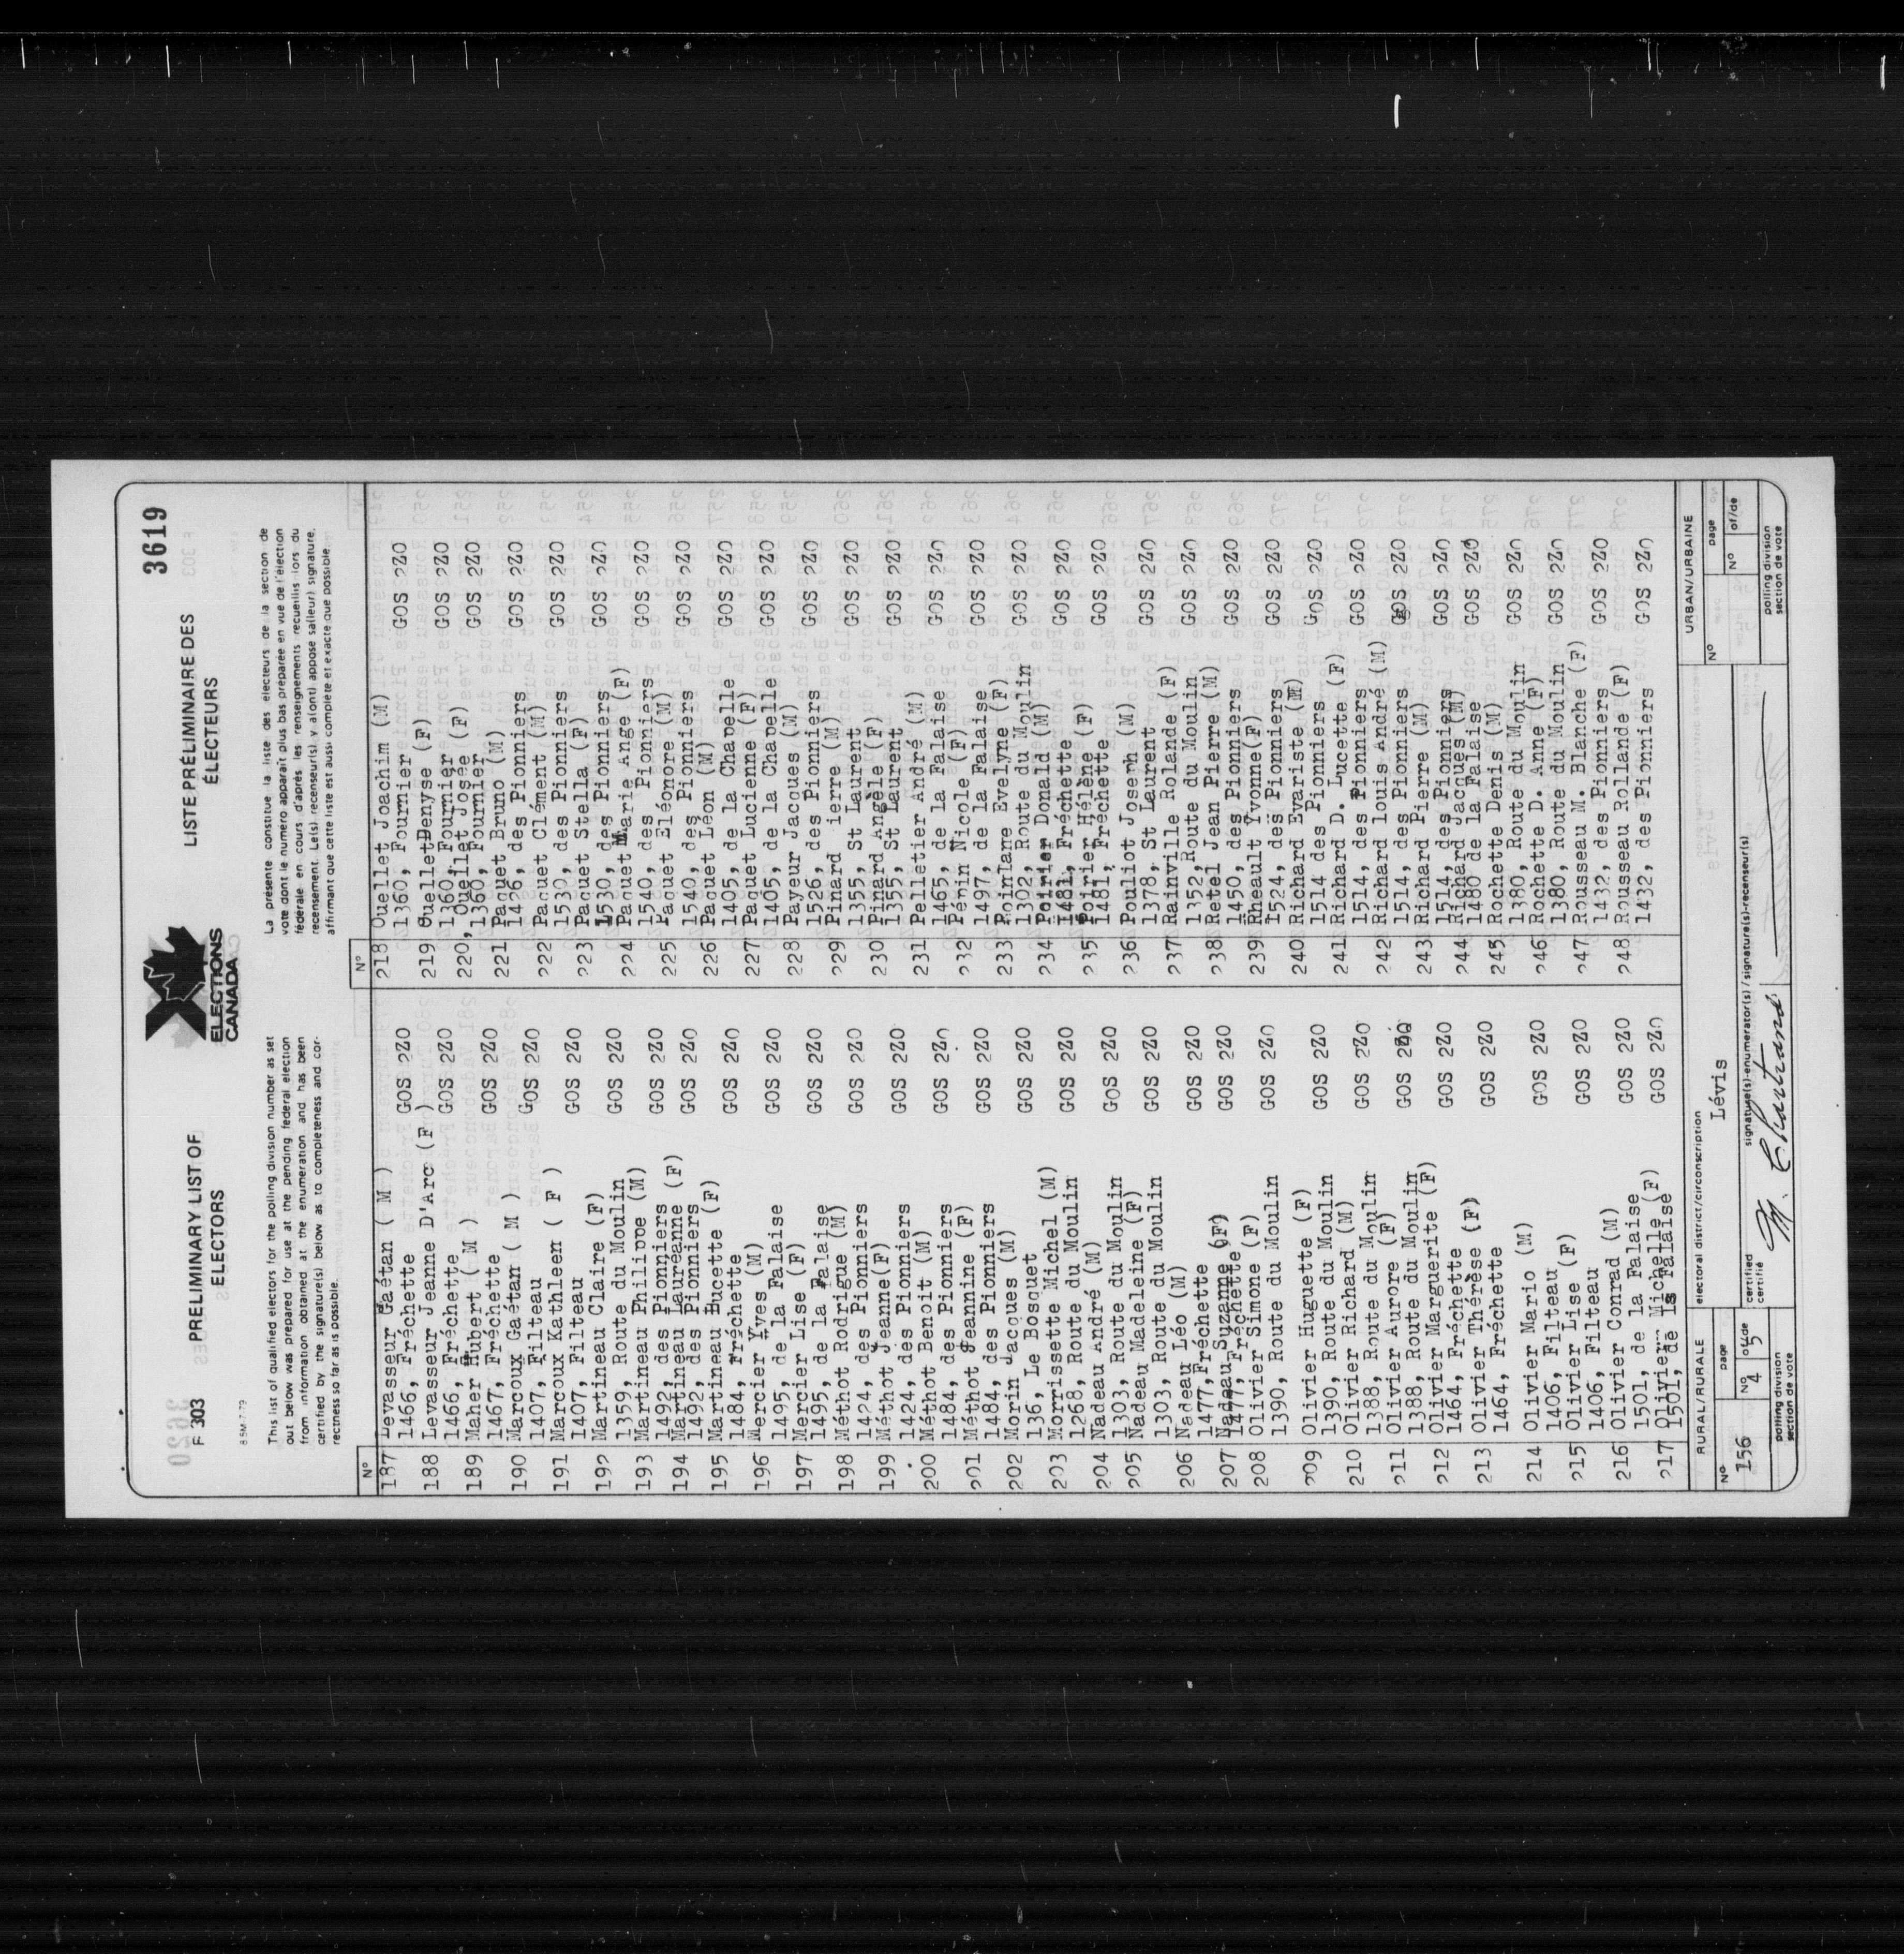 3619
F 303 PRELIMINARY LIST OF
ELECTORS
8.5M-7-79
ELECTIONS
CANADA
LISTE PRÉLIMINAIRE DES
ÉLECTEURS
This list of qualified electors for the polling division number as set
out below was prepared for use at the pending federal election
from information obtained at the enumeration and has been
certified by the signature(s) below as to completeness and cor-
rectness so far as is possible.
La présente constitue la liste des électeurs de la section de
vote dont le numéro apparaît plus bas préparée en vue de l'élection
fédérale en cours d'après les renseignements recueillis lors du
recensement. Le(s) recenseur(s) y a(ont) apposé sa(leur) signature,
affirmant que cette liste est aussi complète et exacte que possible.
Nº
187 Levasseur Gaétan ( M )
1466, Fréchette GOS 2Z0
188 Levasseur Jeanne D'Arc (F )
1466, Fréchette GOS 2Z0
189 Maher Hubert ( M )
1467, Fréchette GOS 2Z0
190 Marcoux Gaétan ( M )
1407, Filteau GOS 2Z0
191 Marcoux Kathleen ( F )
1407, Filteau GOS 2Z0
192 Martineau Claire (F)
1359, Route du Moulin GOS 2Z0
193 Martineau Philippe (M)
1492, des Pionniers GOS 2Z0
194 Martineau Lauréanne (F)
1492, des Pionniers GOS 2Z0
195 Martineau Lucette (F)
1484, Fréchette GOS 2Z0
196 Mercier Yves (M)
1495, de la Falaise GOS 2Z0
197 Mercier Lise (F)
1495, de la Falaise GOS 2Z0
198 Méthot Rodrigue (M)
1424, des Pionniers GOS 2Z0
199 Méthot Jeanne(F)
1424, des Pionniers GOS 2Z0
200 Méthot Benoit (M)
1484, des Pionniers GOS 2Z0
201 Méthot Jeannine (F)
1484, des Pionniers GOS 2Z0
202 Morin Jacques (M)
136, Le Bosquet GOS 2Z0
203 Morrissette Michel (M)
1268, Route du Moulin GOS 2Z0
204 Nadeau André (M)
1303, Route du Moulin GOS 2Z0
205 Nadeau Madeleine (F)
1303, Route du Moulin GOS 2Z0
206 Nadeau Léo (M)
1477,Fréchette GOS 2Z0
207 Nadeau Suzanne (F)
1477, Fréchette GOS 2Z0
208 Olivier Simone (F)
1390, Route du Moulin GOS 2Z0
209 Olivier Huguette (F)
1390, Route du Moulin GOS 2Z0
210 Olivier Richard (M)
1388, Route du Moulin GOS 2Z0
211 Olivier Aurore (F)
1388, Route du Moulin GOS 2Z0
212 Olivier Marguerite (F)
1464, Fréchette GOS 2Z0
213 Olivier Thérèse (F)
1464, Fréchette GOS 2Z0
214 Olivier Mario (M)
1406, Filteau GOS 2Z0
215 Olivier Lise (F)
1406, Filteau GOS 2Z0
216 Olivier Conrad (M)
1501, de la Falaise GOS 2Z0
217 Olivier Michelle (F)
1501, de la Falaise GOS 2Z0
Nº
218 Ouellet Joachim (M)
1360, Fournier GOS 2Z0
219 OuelletDenyse (F)
1360, Fournier GOS 2Z0
220, Ouellet Josée (F)
1360, Fournier GOS 2Z0
221 Paquet Bruno (M)
1426, des Pionniers GOS 2Z0
222 Paquet Clément (M)
1530, des Pionniers GOS 2Z0
223 Paquet Stella (F)
1530, des Pionniers GOS 2Z0
224 Paquet Marie Ange (F)
1540, des Pionniers GOS 2Z0
225 Paquet Eléonore (M)
1540, des Pionniers GOS 2Z0
226 Paquet Léon (M)
1405, de la Chapelle GOS 2Z0
227 Paquet Lucienne (F)
1405, de la Chapelle GOS 2Z0
228 Payeur Jacques (M)
1526, des Pionniers GOS 2Z0
229 Pinard ierre (M)
1355, St Laurent GOS 2Z0
230 Pinard Angèle (F)
1355, St Laurent GOS 2Z0
231 Pelletier André (M)
1465, de la Falaise GOS 2Z0
232 Pépin Nicole (F)
1497, de la Falaise GOS 2Z0
233 Pointlane Evelyne (F)
1302, Route du Moulin GOS 2Z0
234 Poirier Donald (M)
1481, Fréchette GOS 2Z0
235 Poirier Hélène (F)
1481, Fréchette GOS 2Z0
236 Pouliot Joseph (M)
1378, St Laurent GOS 2Z0
237 Rainville Rolande (F)
1352, Route du Moulin GOS 2Z0
238 Ratel Jean Pierre (M)
1450, des Pionniers GOS 2Z0
239 Rheault Yvonne(F)
1524, des Pionniers GOS 2Z0
240 Richard Evariste (M)
1514 des Pionniers GOS 2Z0
241 Richard D. Lucette (F)
1514, des Pionniers GOS 2Z0
242 Richard louis André (M)
1514, des Pionniers GOS 2Z0
243 Richard Pierre (M)
1514, des Pionniers GOS 2Z0
244 Richard Jacques (M)
1480 de la Falaise GOS 2Z0
245 Rochette Denis (M)
1380, Route du Moulin GOS 2Z0
246 Rochette D. Anne (F)
1380, Route du Moulin GOS 2Z0
247 Rousseau M. Blanche (F)
1432, des Pionniers GOS 2Z0
248 Rousseau Rollande (F)
1432, des Pionniers GOS 2Z0
RURAL/RURALE
Nº 156
page
Nº 4 of/de 5
polling division
section de vote
electoral district/circonscription
Lévis
certified
certifié
signature(s)-enumerator(s)/signature(s)-recenseur(s)
M. Chartrand
URBAN/URBAINE
Nº
page
Nº of/de
polling division
section de vote